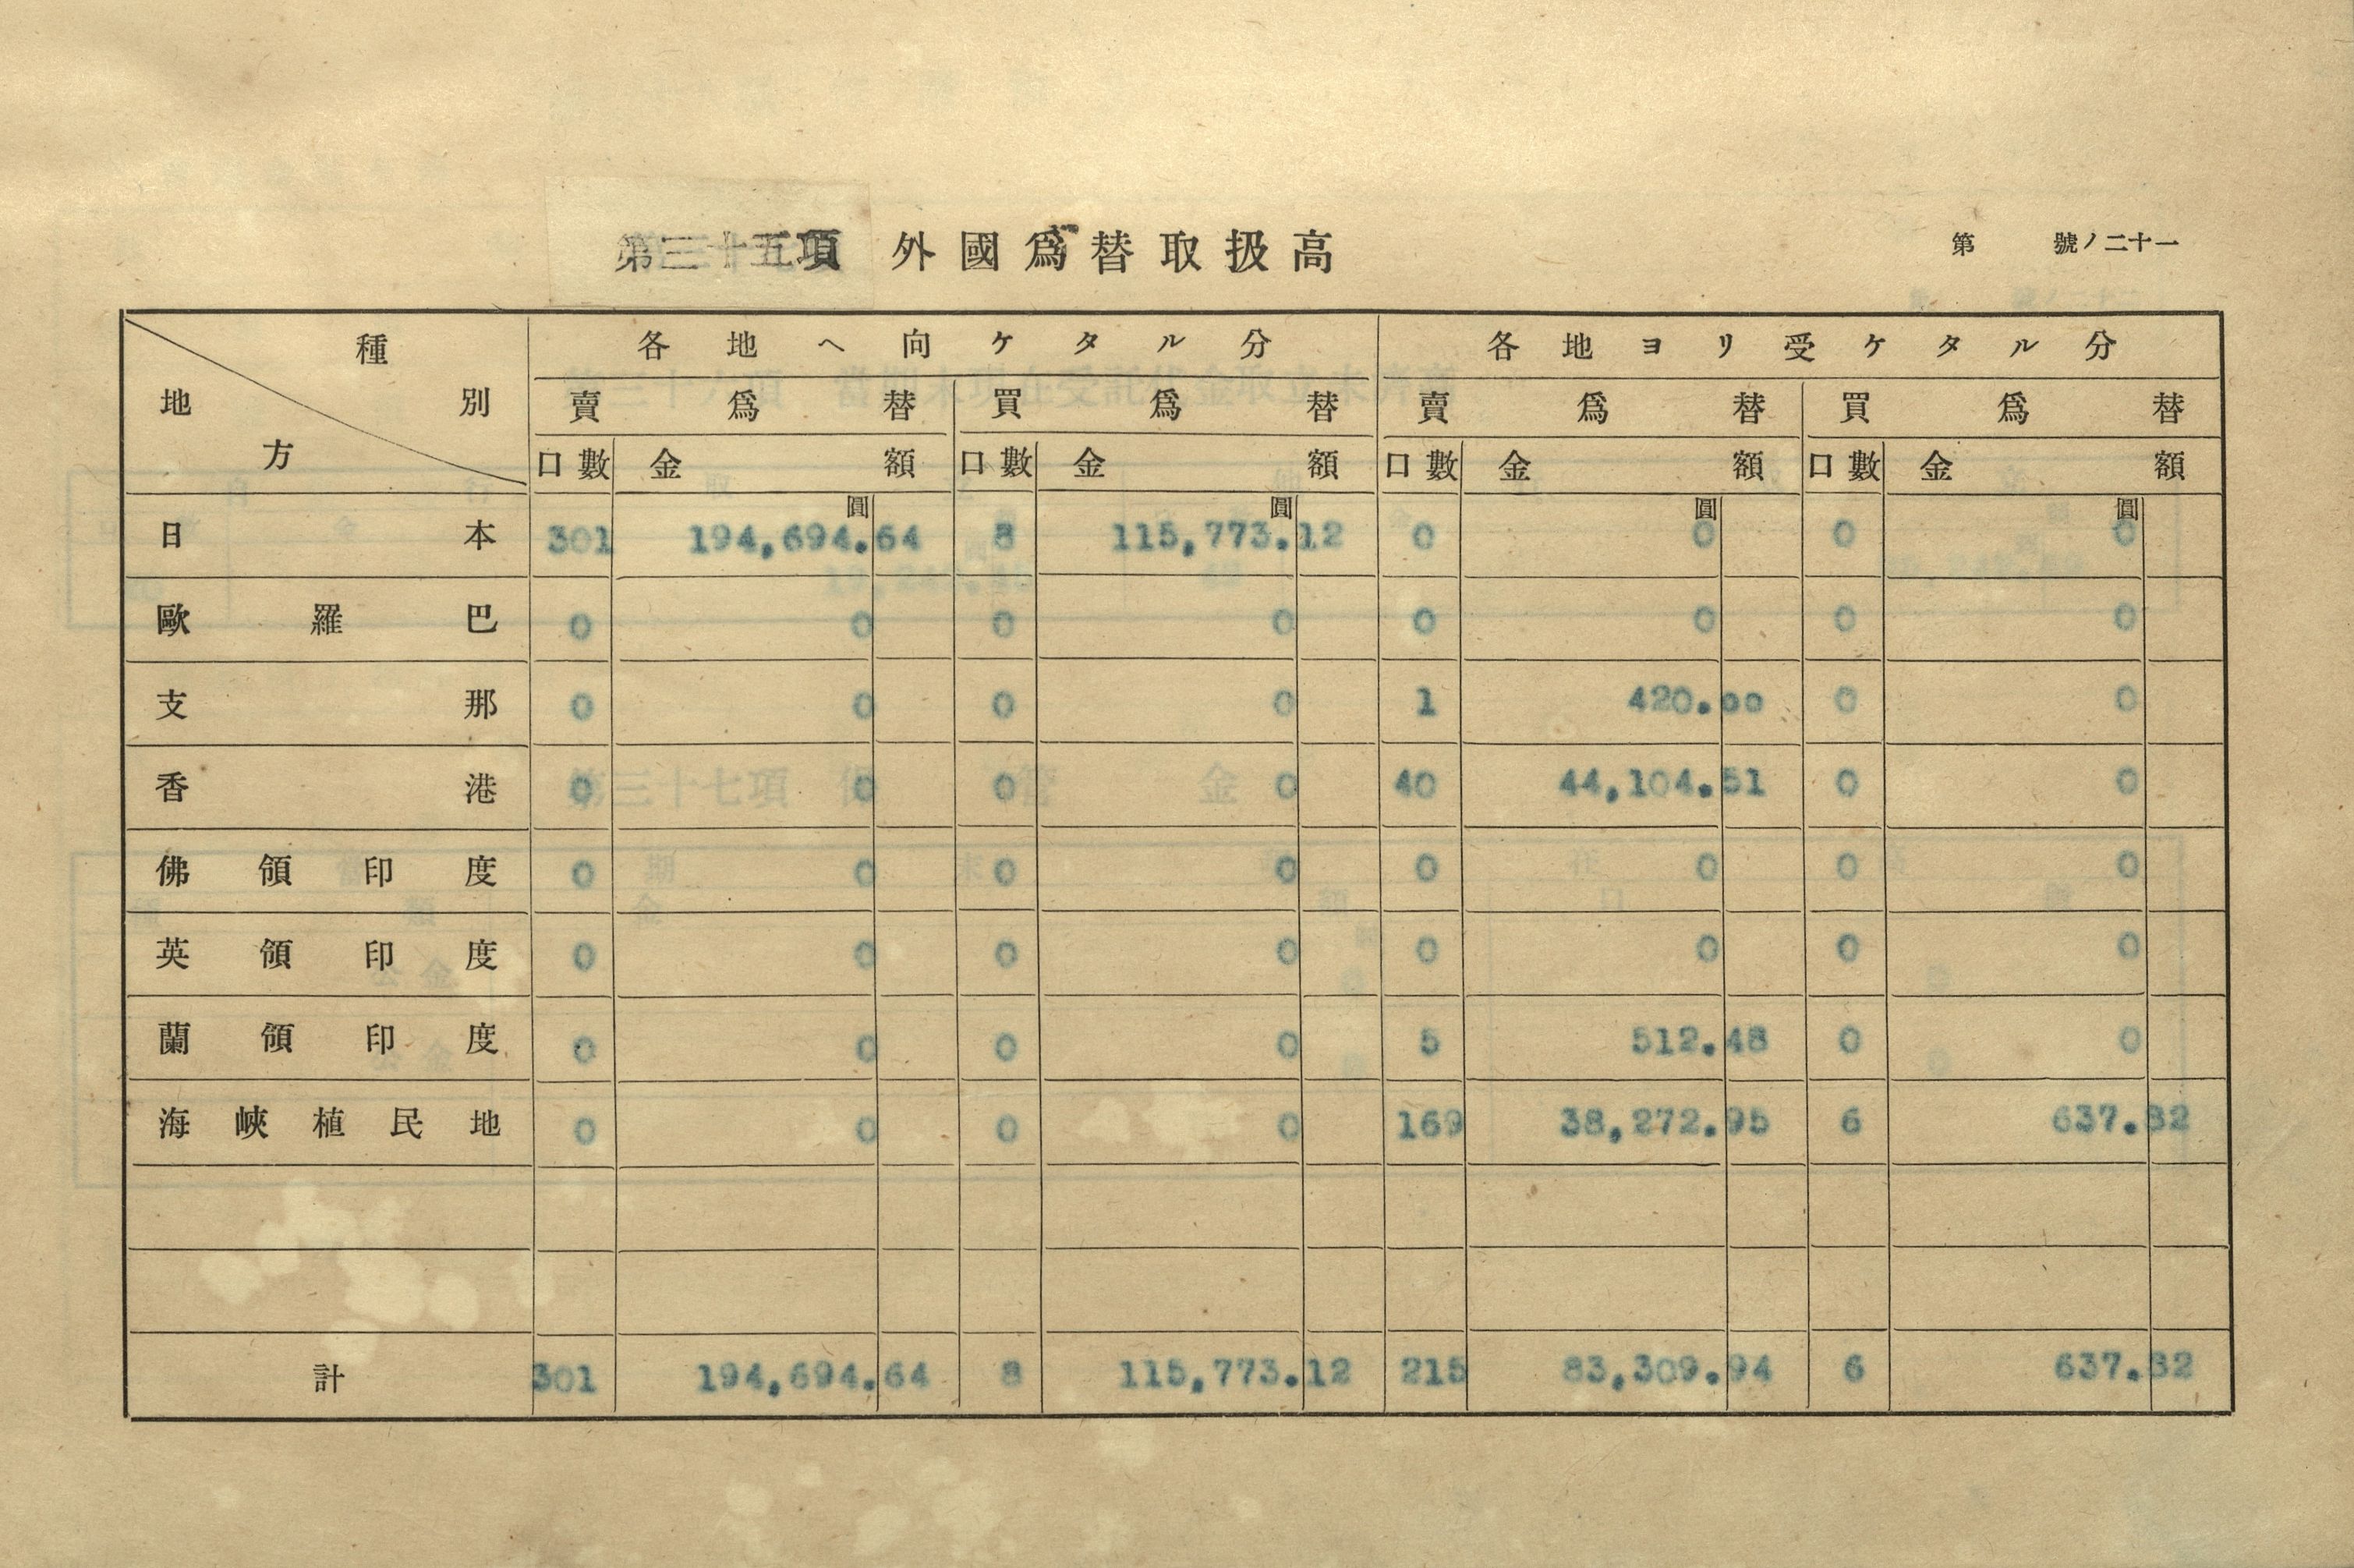 第三十五項 外國爲替取扱高
第 號ノ二十一
種別 地方 各地ヘ向ケタル分 各地ヨリ受ケタル分
賣爲替 買爲替 賣爲替 買爲替
口數 金額 口數 金額 口數 金額 口數 金額
圓 圓 圓 圓
日本 301 194,694.64 8 115,773.12 0 0 0 0
歐羅巴 0 0 0 0 0 0 0 0
支那 0 0 0 0 1 420.00 0 0
香港 0 0 0 0 40 44,104.51 0 0
佛領印度 0 0 0 0 0 0 0 0
英領印度 0 0 0 0 0 0 0 0
蘭領印度 0 0 0 0 5 512.48 0 0
海峽植民地 0 0 0 0 169 38,272.95 6 637.82
計 301 194,694.64 8 115,773.12 215 83,309.94 6 637.82